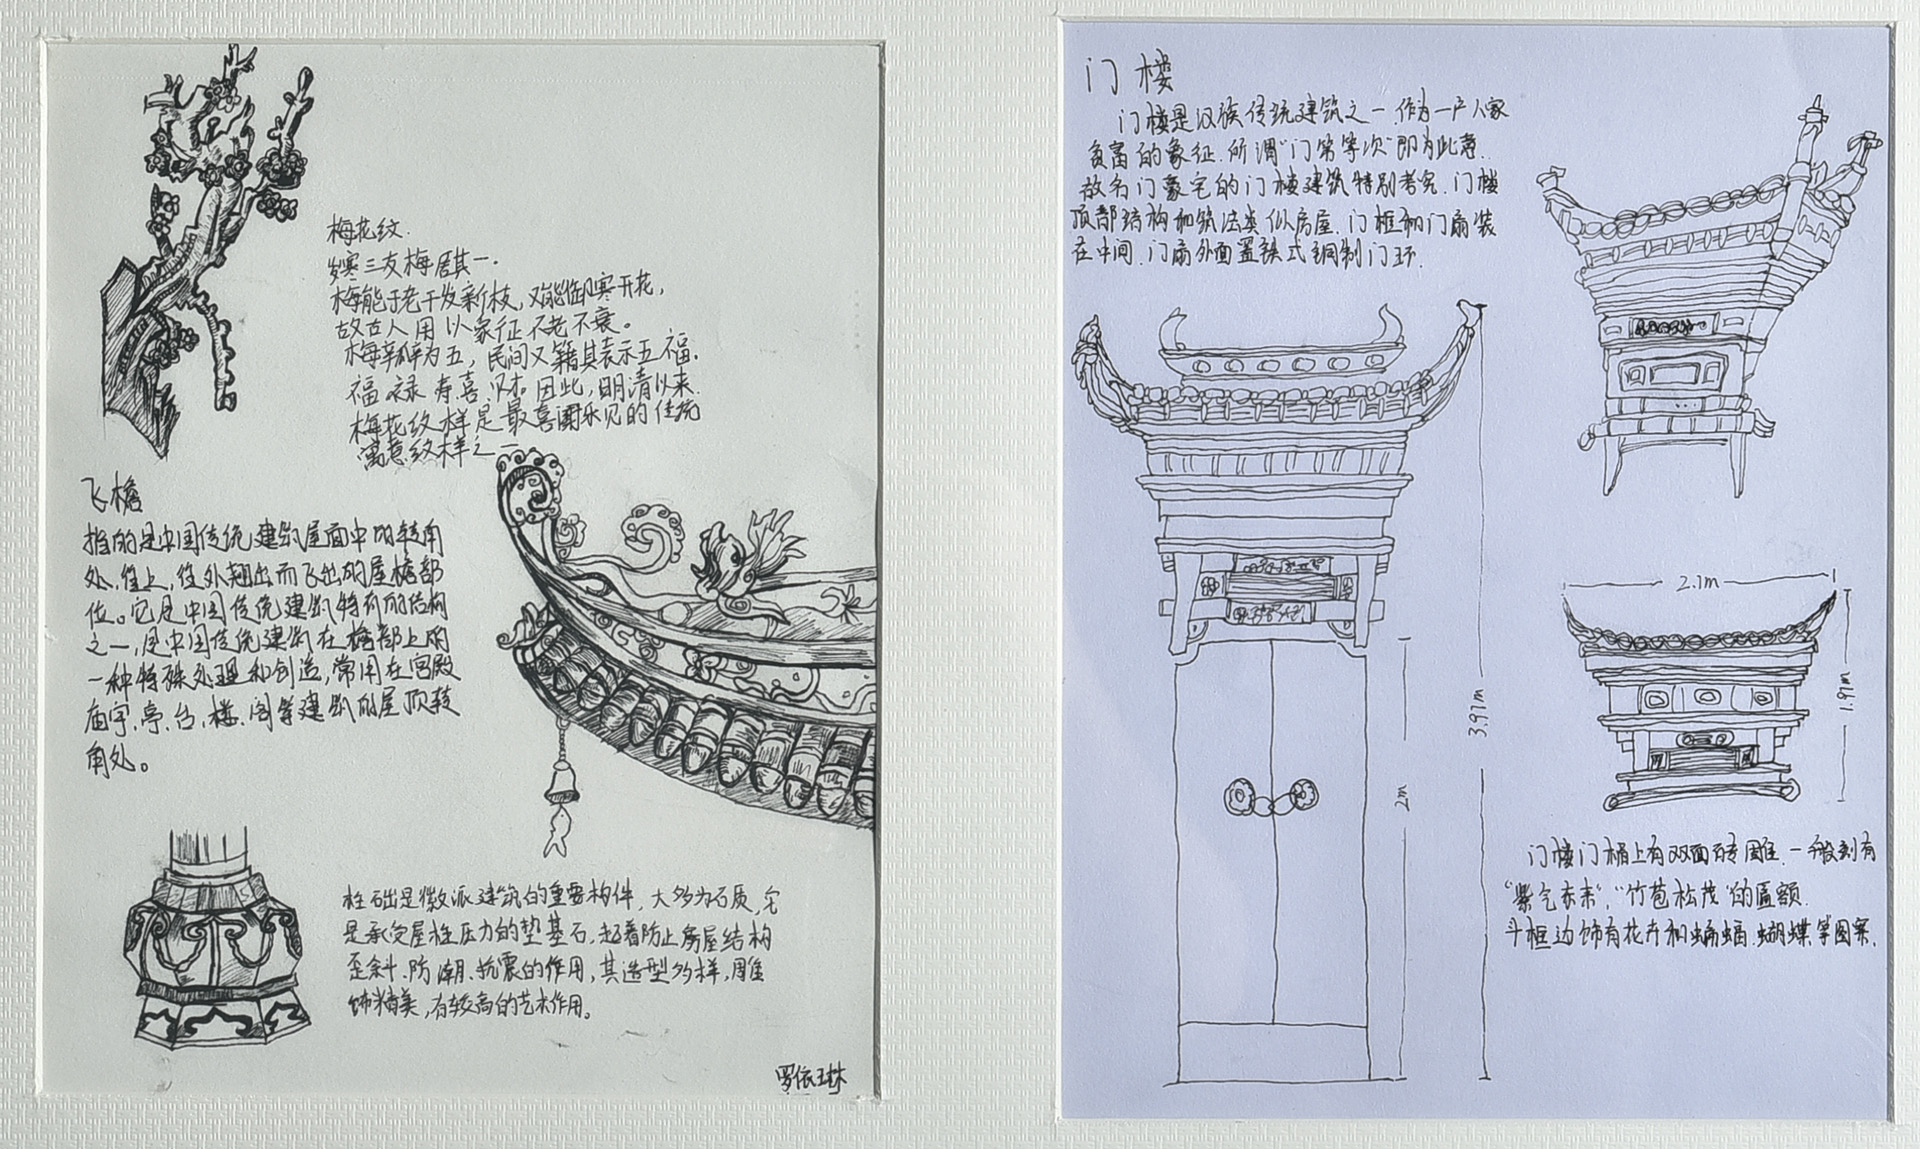 梅花纹.
岁寒三友梅居其一.
梅能于老干发新枝,又能御寒开花,
故古人用以象征不老不衰。
梅瓣为五,民间又籍其表示五福.
福.禄.寿.喜.财。因此,明清以来.
梅花纹样是最喜闻乐见的传统
寓意纹样之一
飞檐
指的是中国传统建筑屋面中的转角
处,往上,往外翘出而飞出的屋檐部
位。它是中国传统建筑特有的结构
之一,是中国传统建筑在檐部上的
一种特殊处理和创造,常用在宫殿
庙宇.亭.台.楼.阁等建筑的屋顶转
角处。
柱础是徽派建筑的重要构件,大多为石质,它
是承受屋柱压力的垫基石,起着防止房屋结构
歪斜.防潮.抗震的作用,其造型多样,雕
饰精美,有较高的艺术作用。
罗依琳
门楼
门楼是汉族传统建筑之一.作为一户人家
贫富的象征.所谓"门第等次"即为此意.
故名门豪宅的门楼建筑特别考究.门楼
顶部结构和筑法类似房屋.门框和门扇装
在中间.门扇外面置铁式铜制门环.
3.97m
2m
2.1m
1.97m
门楼门楣上有双面砖雕.一般刻有
"紫气东来","竹苞松茂"的匾额.
斗框边饰有花卉和蝙蝠.蝴蝶等图案.